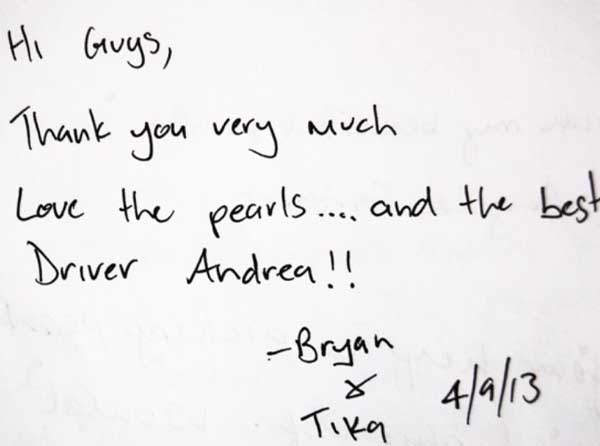 Hi Guys,
Thank you very much
Love the pearls.... and the best
Driver Andrea!!
-Bryan
&
Tika
4/9/13